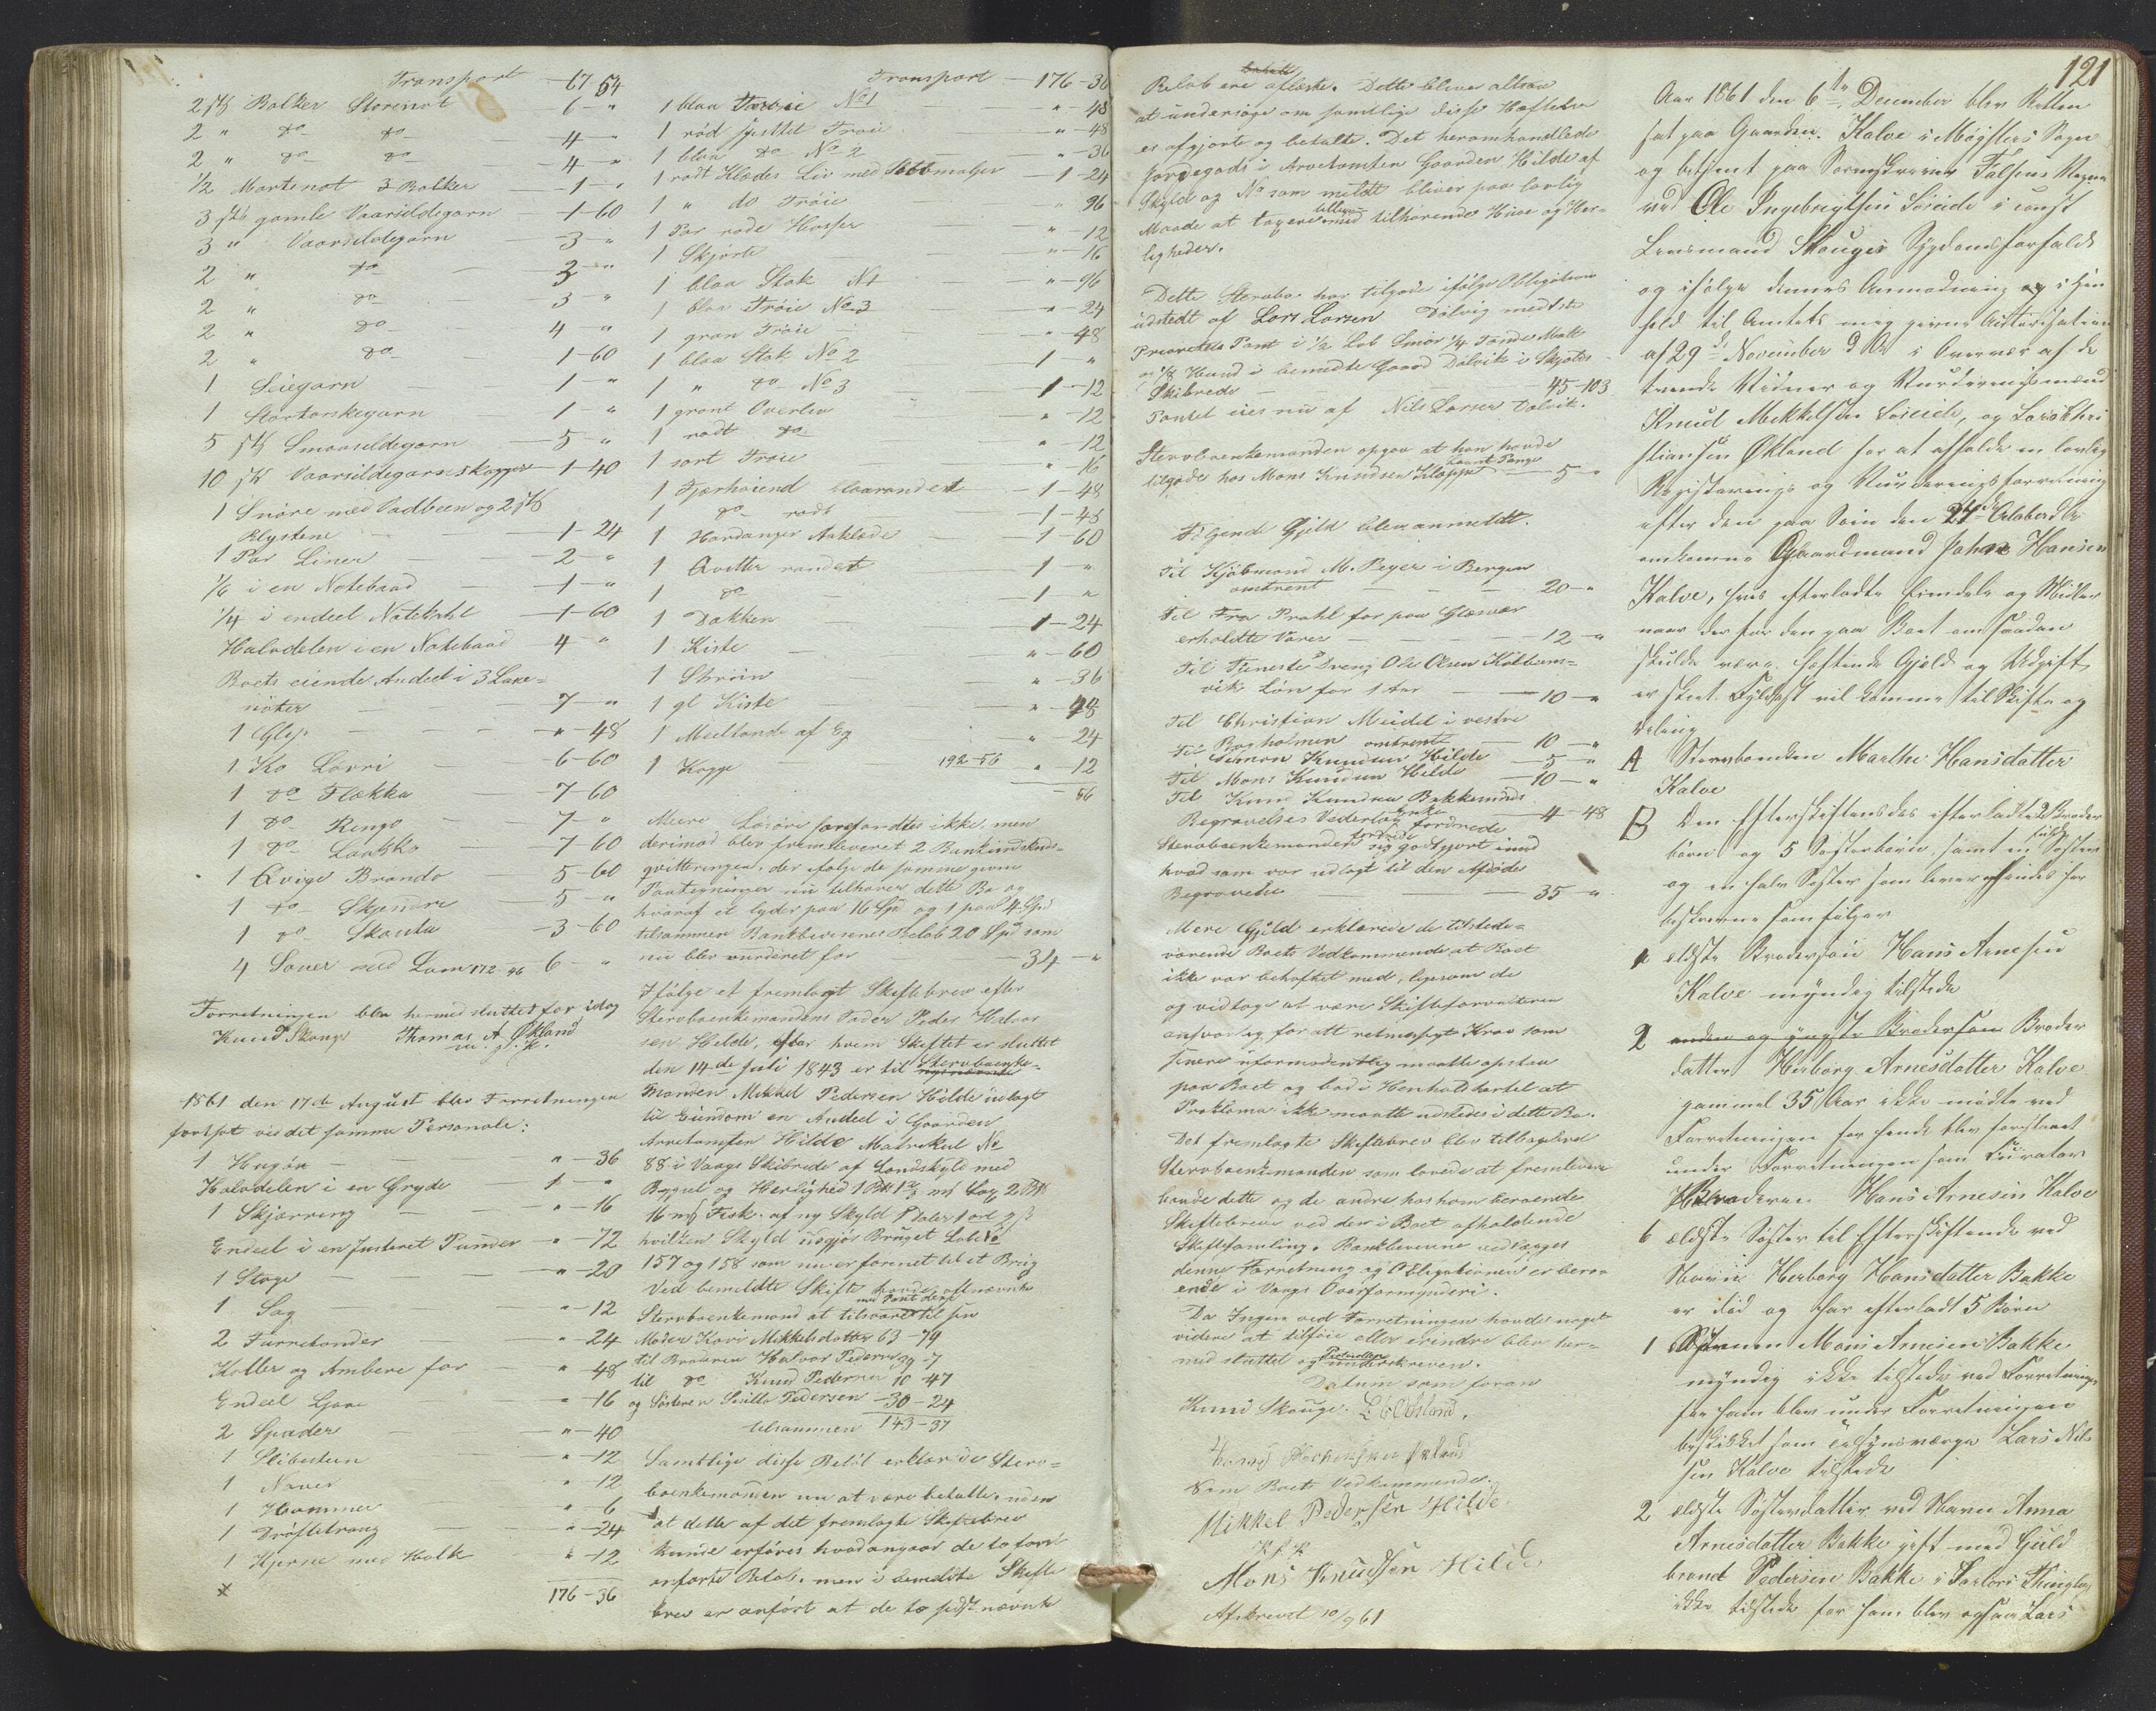 Transport — 67 64
2 stk Bolker Storenot — 6 - "
2 " do do — 4 - "
2 " do do — 4 - "
1/2 Mortenot 3 Bolker — 1 - "
3 stk gamle Vaarsildegarn — 1 - 60
3 " Vaarsildegarn — 3 - "
2 " do — 3 - "
2 " do — 3 - "
2 " do — 4 "
2 " do 1 - 60
1 Seiegarn — 1 - "
1 Stortorskegarn — 1 - "
5 stk Smaasildegarn — 5 - "
10 stk Vaarsildegarnskagger — 1 - 40
1 Snøre med Vadbeen og 2 stk
Klystene — 1 - 24
1 Par Liner — 2 - "
1/6 i en Notebaad — 1 - "
1/4 i endeel Notekahl — 1 - 60
Halvdelen i en Notebaad 4 - "
Boets eiende Andeel i 3 Laxe=
nøter — 7 - "
1 Glep — " - 48
1 Ko Lovri — 6 - 60
1 do Flekka — 7 - 60
1 do Ringo — 7 - "
1 do Laukko 7 - 60
1 Qvige Brando — 5 - 60
1 do Skjendre — 5 - "
1 do Skauta — 3 - 60
4 Souer med Lam 172 - 46 6 - "
Forretningen blev hermed sluttet for idag
Knud Skouge Thomas A. Økland
m. p. p.
1861 den 17de August blev Forretningen
fortsat ved det samme Personale:
1 Høgøn — " - 36
Halvdelen i en Gryde 1 - "
1 Skjærring — " - 16
Endeel i en Justeret Punder — " - 72
1 Stage — " - 20
1 Sag " - 12
2 Furretonder " - 24
Koller og Ambere for — " 48
Endeel Ljaae " - 16
2 Spader — " - 40
1 Slibesteen " - 12
1 Naver " - 12
1 Hammer " - 6
1 Drøftetroug " - 24
1 Kjerne med Holk " - 12
176 - 36
Transport — 176 - 36
1 blaa Trøie No 1 — " - 48
1 rød spettet Trøie " - 48
1 blaa do No 2 — " - 36
1 rødt Klædes Liv med Sølvmaljer — 1 - 24
1 " do Trøie " 96
1 Par røde Hoser " - 12
1 Skjørte " - 16
1 blaa Stak No 1 " - 96
1 blaa Trøie No 3 " - 24
1 grøn Trøie " - 48
1 blaa Stak No 2 1 - "
1 " do No 3 1 - 12
1 grønt Overliv " - 12
1 rødt do " - 12
1 sort Trøie " - 16
1 Fjærhøiend blaarandet — 1 - 48
1 do rødt — 1 - 48
1 Hardanger Aaklæde — 1 - 60
1 Qvittle randet — 1 - "
1 do — 1 - "
1 Dakken — 1 - 24
1 Kiste — " - 60
1 Skriin — " - 36
1 gl Kiste — " - 48
1 Meeltønde af Eg " - 24
1 Kagge 192 - 56 " 12
Meere Løsøre forefandtes ikke, men
derimod blev fremleveret 2 Bankindskuds=
qvitteringer, der ifølge de samme givne
Paategninger nu tilhører dette Bo og
hvoraf et lyder paa 16 Spd og 1 paa 4 Spd
tilsammen Bankbevisenes Beløb 20 Spd som
nu blev vurderet for — 34 - "
Ifølge et fremlagt Skiftebrev efter
Stervboenkemandens Fader Peder Halvor
sen Hilde, efter hvem Skiftet er sluttet
den 14de Juli 1843 er til Stervboenke=
manden Mikkel Pedersen Hilde udlagt
til Eiendom en Andeel i Gaarden
Arnetomten Hilde Matrikul No
88 i Vaags Skibrede af Landskyld med
Bygsel og Herlighed
16 mk Fisk, af ny Skyld 1 Daler 1 ort 9 s
hvilken Skyld udgjør Bruget Løbe No
157 og 158 som nu er forenet til et Brug
Ved bemeldte Skifte havde oftnævnte
med Pant deri
Stervboenkemand at tilsvare til sin
Moder Kari Mikkelsdatter 63 - 79
til Broderen Halvor Pedersen 39 - 7
til do Knud Pedersen 10 - 47
og Søsteren Sirilla Pedersen — 30 - 24
tilsammen 143 - 37
Samtlige disse Beløb erklærede Sterv=
boenkemanden nu at være betalte, uden
at dette af det fremlagte Skiftebrev
kunde erfares hvad angaar de to først
anførte Beløb, men i bemeldte Skifte
brev er anført at de to sidst nævnte
Beløb ere aflæste. Dette bliver altsaa
at undersøge om samtlige disse Hæftelser
er afgjorte og betalte. Det heromhandlede
Jordegods i Arnetomten Gaarden Hilde af
Skyld og No som meldt bliver paa lovlig
Maade at taxere med tilhørende Huse og Her=
ligheder.
Dette Stervbo har tilgode ifølge Obligation
udstedt af Lars Larsen Dalvig med 1ste
Prioritets Pant i 1/2 Løb Smør 1/4 Tønde Malt
og 1/8 Huud i bemeldte Gaard Dalvik i Skjolds
Skibrede — 45 - 103
Pantet eies nu af Nils Larsen Dalvik.
Stervboenkemanden opgav at han havde
laant Penge
tilgode hos Mons Knudsen Kleppe — 5 - "
Følgende Gjeld blev anmeldt.
Til Kjøbmand M. Beyer i Bergen
omtrent — 20 - "
Til Fra Prahl for paa Glesvær
erholdte Varer — 12 - "
Til Tjeneste Dreng Ole Olsen Koltvens=
vik Løn for 1 Aar — 10 - "
Til Christian Meidel i vestre
Bogholmen omtrent — 10 - "
Til Simon Knudsen Hilde — 5 - "
Til Mons Knudsen Hilde — 10 - "
Til Knud Knudsen Bekkesinds
Begravelses Vederlag 4 - 48
Stervboenkemanden fordrede sig godtgjort imod
hvad som var udlagt til den Afdødes
Begravelse — 35 - "
Mere Gjeld erklærede de tilstede=
værende Boets Vedkommende at Boet
ikke var beheftet med, ligesom de
og vedtog at være Skifteforvalteren
ansvarlig for alt retmæssigt Krav som
senere uformodentlig maatte opstaa
paa Boet og bad i Henhold hertil at
Proklama ikke maatte udstedes i dette Bo.
Det fremlagte Skiftebrev blev tilbageleveret
Stervboenkemanden som lovede at fremlevere
baade dette og de andre hos ham beroende
Skiftebreve ved den i Boet afholdende
Skiftesamling. Bankbevisene vedlægges
denne Forretning og Obligationen er bero=
ende i Vaags Overformynderi.
Da Ingen ved Forretningen havde noget
videre at tilføie eller erindre blev her=
med sluttet og underskreven.
Datum som foran
Knud Skouge.
Som Boets Vedkommende.
Mikkel Pedersen Hilde
Mons Knudsen Hilde
Afskrevet 10/9 61
121
Aar 1861 den 6te December blev Retten
sat paa Gaarden Kalve i Møgsters Sogn
og betjent paa Sorenskriver Falsens Vegne
ved Ole Ingebrigtsen Søreide i const
Lensmand Skouges Sygdomsforfald
og ifølge dennes Anmodning og i Hen
hold til Amtets meg givne Autorisation
af 29de November d A i Overvær af de
tvende Vidner og Vurderingsmænd
Knud Mikkelsen Søreide, og Lars Chri
stiansen Økland for at afholde en lovlig
Registrerings og Vurderingsforretning
efter den paa Søen den 24de Octoberd A
omkomne Gaardmand Johan Hansen
Kalve, hvis efterladte Eiendele og Midler
naar derfor den paa Boet om saadan
skulde være heftende Gjeld og Udgift
er skeet Fyldest vil komme til Skifte og
Deling
A Stervboenken Marthe Hansdatter
Kalve
B Den Efterskiftendes efterladte 2 Broder
børn og 5 Søsterbørn, samt en Søster
og en halv Søster som
beskrevne som følger
a ældste Brodersøn Hans Arnesen
Kalve myndig tilstede
2 anden og yngste Brodersøn Broder
datter Herborg Arnesdatter Kalve
gammel 35 Aar ikke mødte ved
Forretningen for hende blev forestaaet
under Forretningen som Curator
Broderen Hans Arnesen Kalve
b ældste Søster til Efterskiftende ved
Navn Herborg Hansdatter Bakke
er død og har efterladt 5 Børn
1 Sønnen Mons Arnesen Bakke
myndig ikke tilstede ved Forretningen
for ham blev under Forretningen
beskikket som tilsynsværge Lars Nil
sen Kalve tilstede
2 ældste Søsterdatter ved Navn Anna
Arnesdatter Bakke gift med Guld
brand Pedersen Bakke i Sartors Thinglag
ikke tilstede for ham blev ogsaa Lars